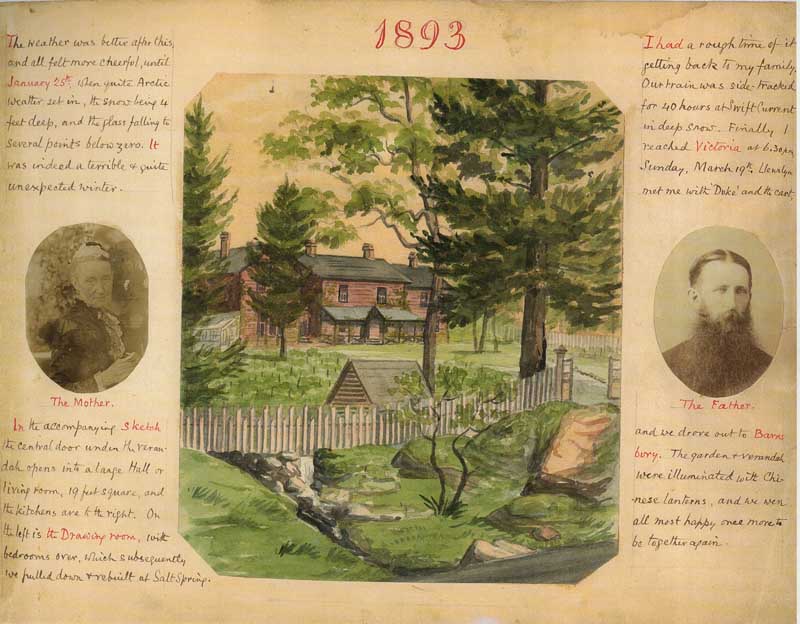 1893
The weather was better after this,
and all felt more cheerful, until
January 25th, when quite Arctic
weather set in, the snow being 4
feet deep, and the glass falling to
several points below zero. It
was indeed a terrible & quite
unexpected winter.
The Mother.
In the accompanying Sketch
the central door under the veran-
dah opens into a large Hall or
living room, 19 feet square, and
the kitchens are to the right. On
the left is the Drawing room, with
bedrooms over, which subsequently
we pulled down & rebuilt at Salt Spring.
I had a rough time of it
getting back to my family.
Our train was side-tracked
for 40 hours at Swift Current
in deep snow. Finally I
reached Victoria at 6.30 pm
Sunday, March 19th. Llewelyn
met me with 'Duke' and the cart,
The Father.
and we drove out to Barns
bury. The garden & verandah
were illuminated with Chi-
nese lanterns, and we were
all most happy once more to
be together again.